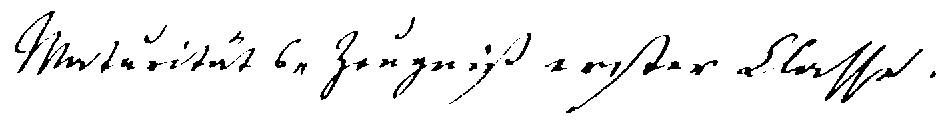 Maturitäts-Zeugniß erster Classe.